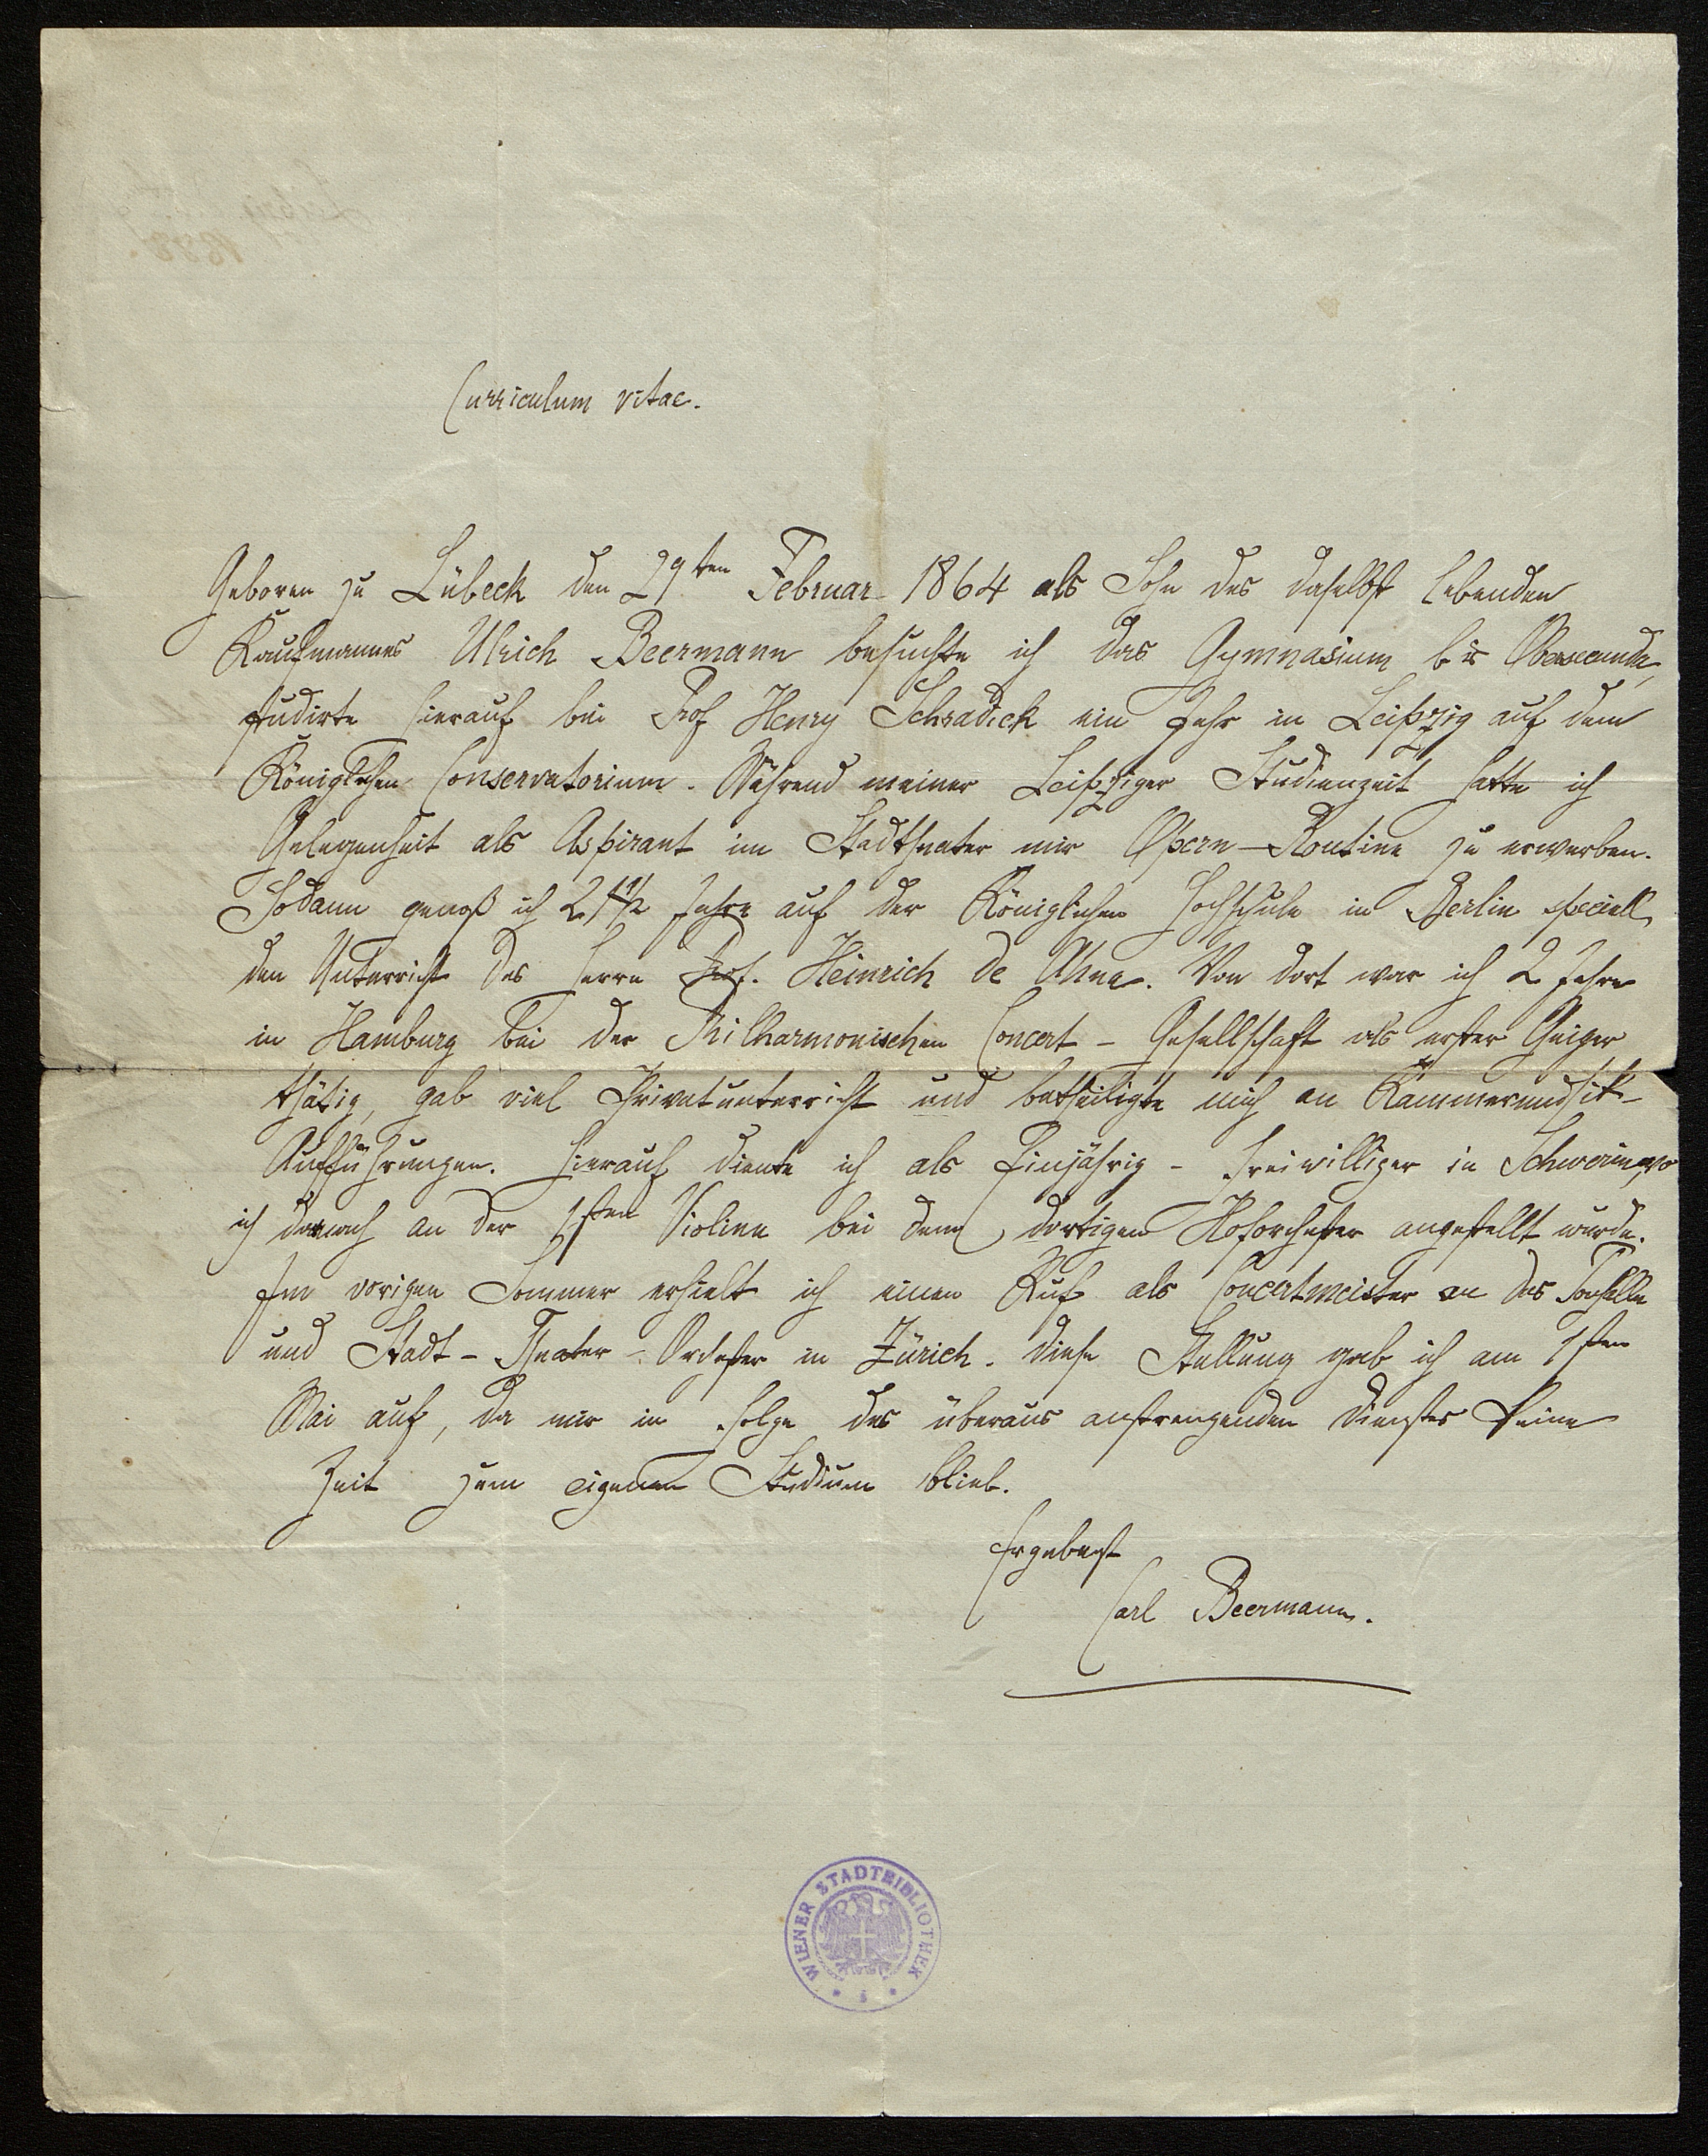 Curriculum vitae.
Geboren zu Lübeck den 29ten Februar 1864 als Sohn des daselbst lebenden
Kaufmannes Ulrich Beermann besuchte ich das Gymnasium bis Obersecunda,
studirte hierauf bei Prof Henry Schradieck ein Jahr in Leipzig auf dem
Königlichen Conservatorium. Während meiner Leipziger Studienzeit hatte ich
Gelegenheit als Aspirant im Stadttheater mir Opern-Routine zu erwerben.
Sodann genoß ich 2 1/2 Jahre auf der Königlichen Hochschule in Berlin speciell
den Unterricht des Herrn Prof. Heinrich de Ahna. Von dort war ich 2 Jahre
in Hamburg bei der Philharmonischen Concert-Gesellschaft als erster Geiger
thätig, gab viel Privatunterricht und betheiligte mich an Kammermusik-
Aufführungen. Hierauf diente ich als Einjährig-Freiwilliger in Schwerin, wo
ich danach an der 1sten Violine bei dem dortigen Hoforchester angestellt wurde.
Im vorigen Sommer erhielt ich einen Ruf als Concertmeister an das Tonhalle
und Stadt-Theater-Orchester in Zürich. Diese Stellung gab ich am 1sten
Mai auf, da mir in Folge des überaus anstrengenden Dienstes keine
Zeit zum eigenen Studium blieb.
Ergebenst
Carl Beermann.
WIENER STADTBIBLIOTHEK